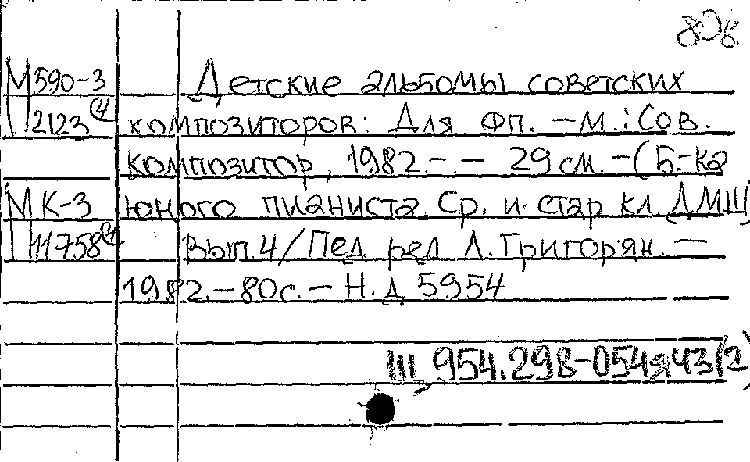 М590-3 Детские альбомы советских
2123(4) композиторов: Для фп. — М.: Сов.
композитор, 1982.- — 29 см. — (Б-ка
МК-3 юного пианиста. Ср. и стар кл ДМШ
11758 Вып. 4/ Пед ред Л. Григорян. —
1982. — 80с. — Н.д 5954
Ш 954.298-054я43(2)